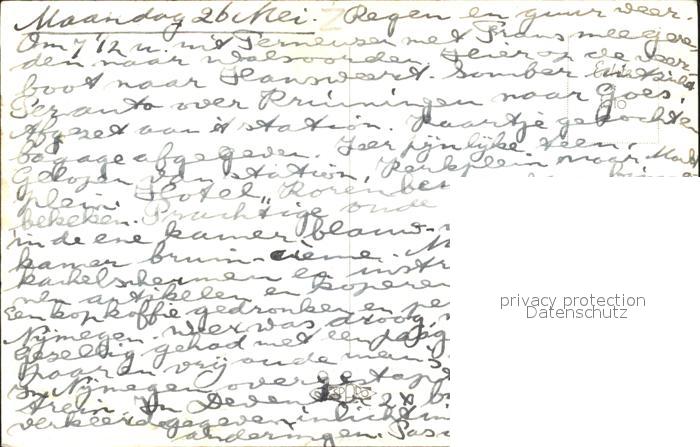 Maandag 26 Mei. Regen en guur weer.
Om 7 1/2 u. uit Terneuzen met Frans meegere
den naar Walsoorden. Hier op de veer
boot naar Hansweert. Somber
Per auto over Kruiningen naar Goes,
Afgezet aan 't station. Kaartje gekochte
bagage afgegeven. Zeer pijnlijke teen,
Gelopen van station, Parkplein naar Markt
plein. Hotel „Korenbe
bekeken. Prachtige oude
in de ene kamer, blauw-
kamer bruin-crème.
kachelschermen en instr
nen artikelen en koperen
Een kop koffie gedronken en pe
Nijmegen. Weer was droog,
Gezellig gehad met een jong
paar en vrij oude man
In Nijmegen overgestapt
trein. In Deventer 2x
verkeerd gegeven inlichtin
anderingen. Pas
privacy protection
Datenschutz